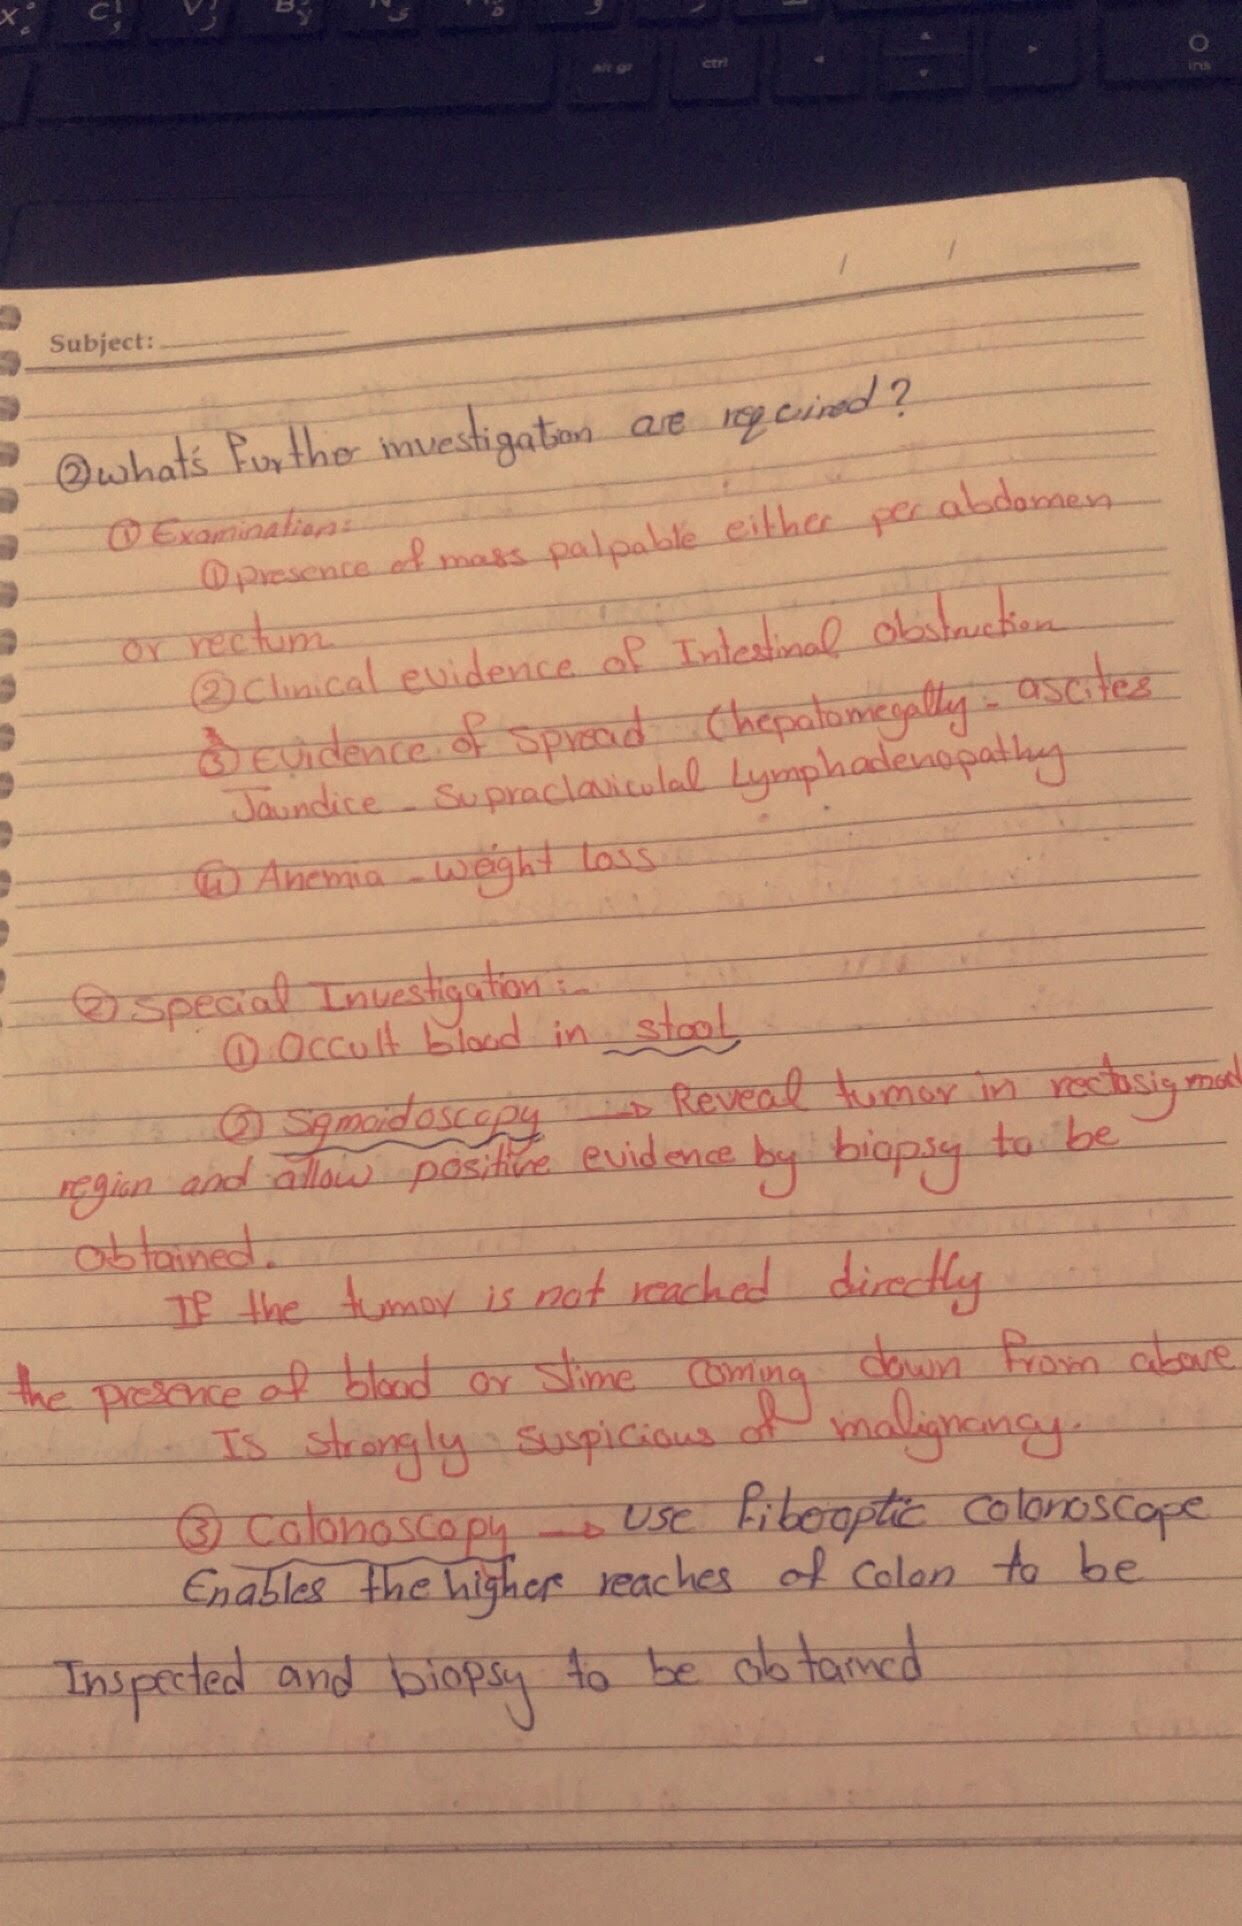 Subject:
②what's further investigation are required?
① Examination:
① presence of mass palpable either per abdomen
or rectum
② Clinical evidence of Intestinal obstruction
③ Evidence of spread (hepatomegally - ascites
Jaundice - Supraclavicular Lymphadenopathy
④ Anemia - weight loss
② Special Investigation:-
① Occult blood in stool
② Sgmoidoscopy → Reveal tumor in rectosigmod
region and allow positive evidence by biopsy to be
obtained.
If the tumor is not reached directly
the presence of blood or slime coming down from above
Is strongly suspicious of malignancy.
③ Colonoscopy → use fibrooptic colonoscope
Enables the higher reaches of colon to be
Inspected and biopsy to be obtained